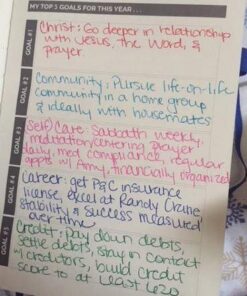 MY TOP 5 GOALS FOR THIS YEAR...
GOAL #1
Christ: Go deeper in relationship
with Jesus, the Word, &
prayer.
GOAL #2
Community: Pursue life-on-life
community in a home group
& ideally with housemates
GOAL #3
Self/Care: Sabbath weekly,
meditation/centering prayer
daily, med compliance, regular
appts w/ Amy, financially organized
GOAL #4
Career: get P&C insurance
license, excel at Randy
stability, & success measured
over time
GOAL #5
Credit: Pay down debts,
settle debts, stay in contact
w/ creditors, build credit
score to at least 620